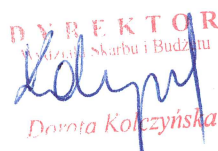 DYREKTOR
Wydziału Skarbu i Budżetu
Dorota Kolczyńska